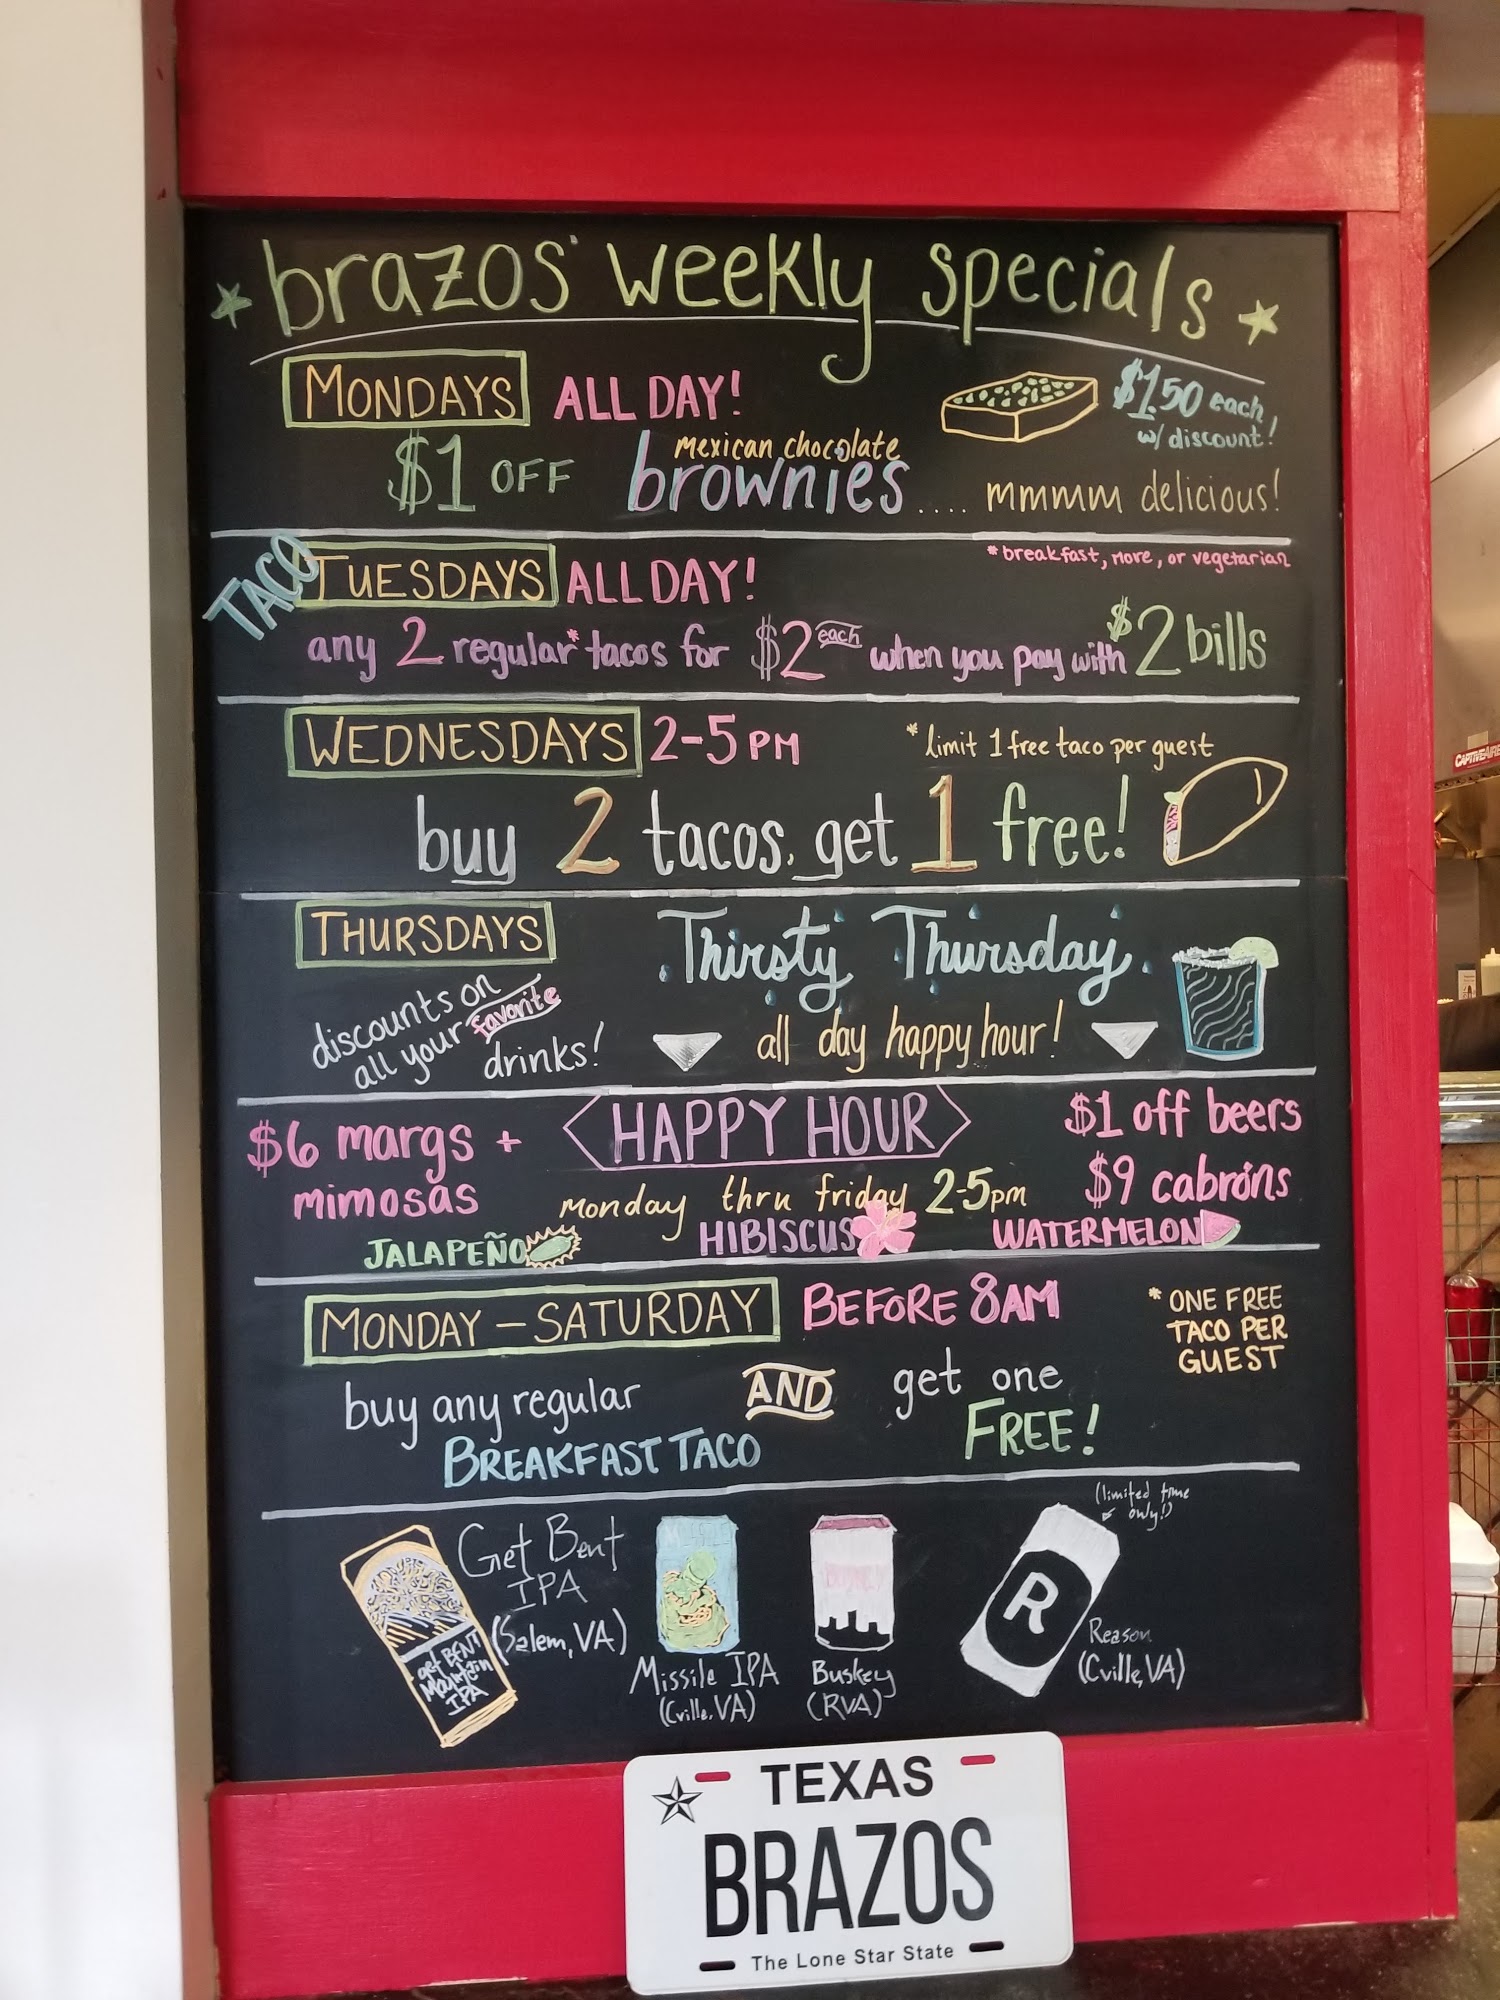 brazos' weekly specials
MONDAYS ALL DAY!
$1.50 each
w/ discount!
$1 OFF mexican chocolate
brownies.... mmmm delicious!
TACO TUESDAYS ALL DAY!
*breakfast, more, or vegetarian
any 2 regular* tacos for $2 each when you pay with $2 bills
WEDNESDAYS 2-5 PM
*limit 1 free taco per guest
buy 2 tacos, get 1 free!
THURSDAYS
Thirsty Thursday
discounts on
all your favorite
drinks!
all day happy hour!
HAPPY HOUR
$6 margs +
mimosas
$1 off beers
$9 cabróns
monday thru friday 2-5pm
JALAPEÑO HIBISCUS WATERMELON
MONDAY - SATURDAY BEFORE 8AM
* ONE FREE
TACO PER
GUEST
buy any regular
BREAKFAST TACO
AND
get one
FREE!
Get Bent
IPA
(Salem, VA)
get BENT
Mountain
IPA
Missile IPA
(Cville, VA)
Buskey
(RVA)
(limited time
only!)
R
Reason
(Cville, VA)
TEXAS
BRAZOS
The Lone Star State
CAPTIVEAIRE